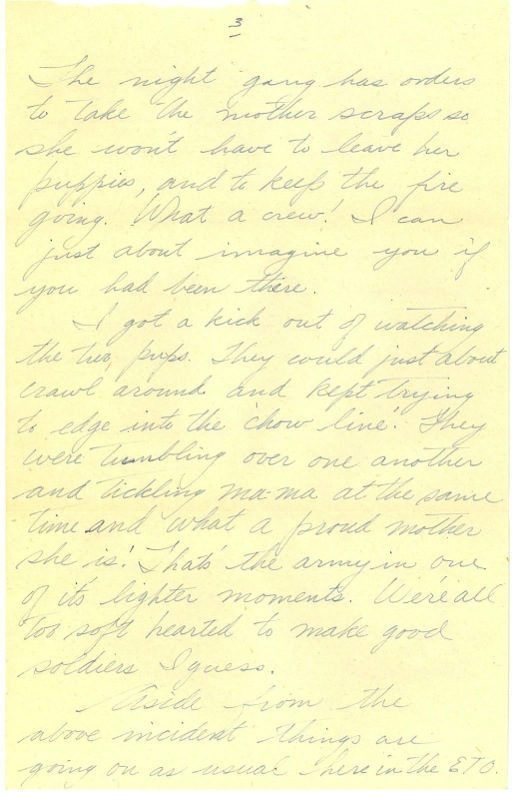 3
The night gang has orders
to take the mother scraps so
she won't have to leave her
puppies, and to keep the fire
going. What a crew! I can
just about imagine you if
you had been there.
I got a kick out of watching
the two, pups. They could just about
crawl around and kept trying
to edge into the 'chow line'. They
were tumbling over one another
and tickling ma-ma at the same
time and what a proud mother
she is! That's the army in one
of its lighter moments. We're all
too soft hearted to make good
soldiers I guess.
Aside from the
above incident things are
going on as usual here in the ETO.